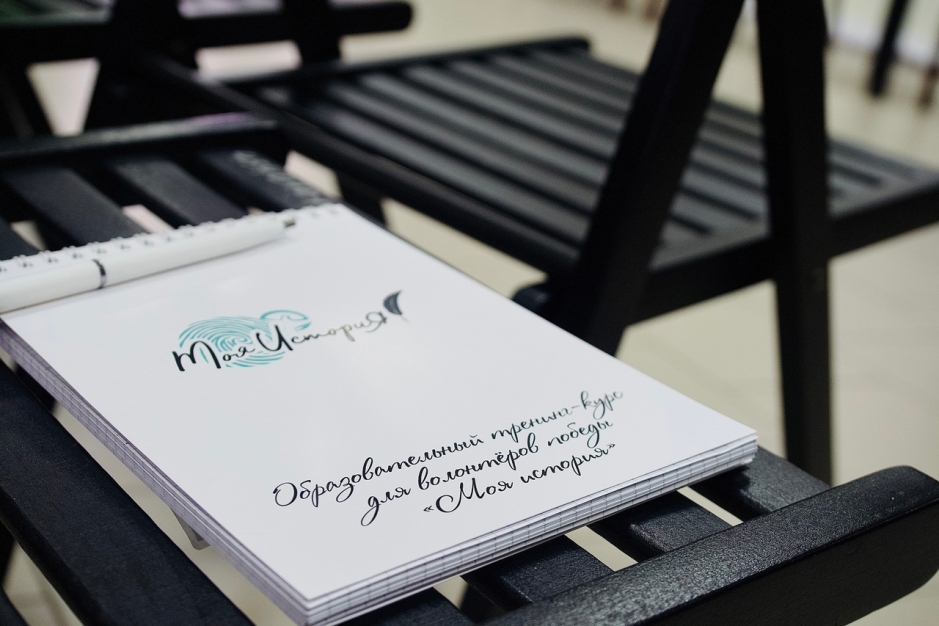 Моя История
Образовательный тренинг-курс
для волонтёров победы
«Моя история»